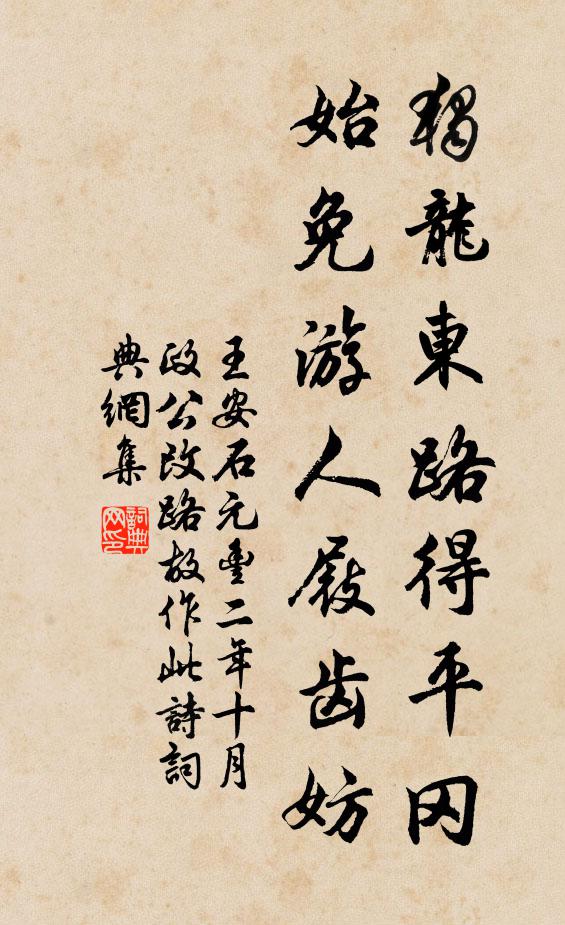 獨龍東路得平冈
始免游人屐齿妨
王安石元豐二年十月
政公改路故作此詩詞
典網集
詞典
网印